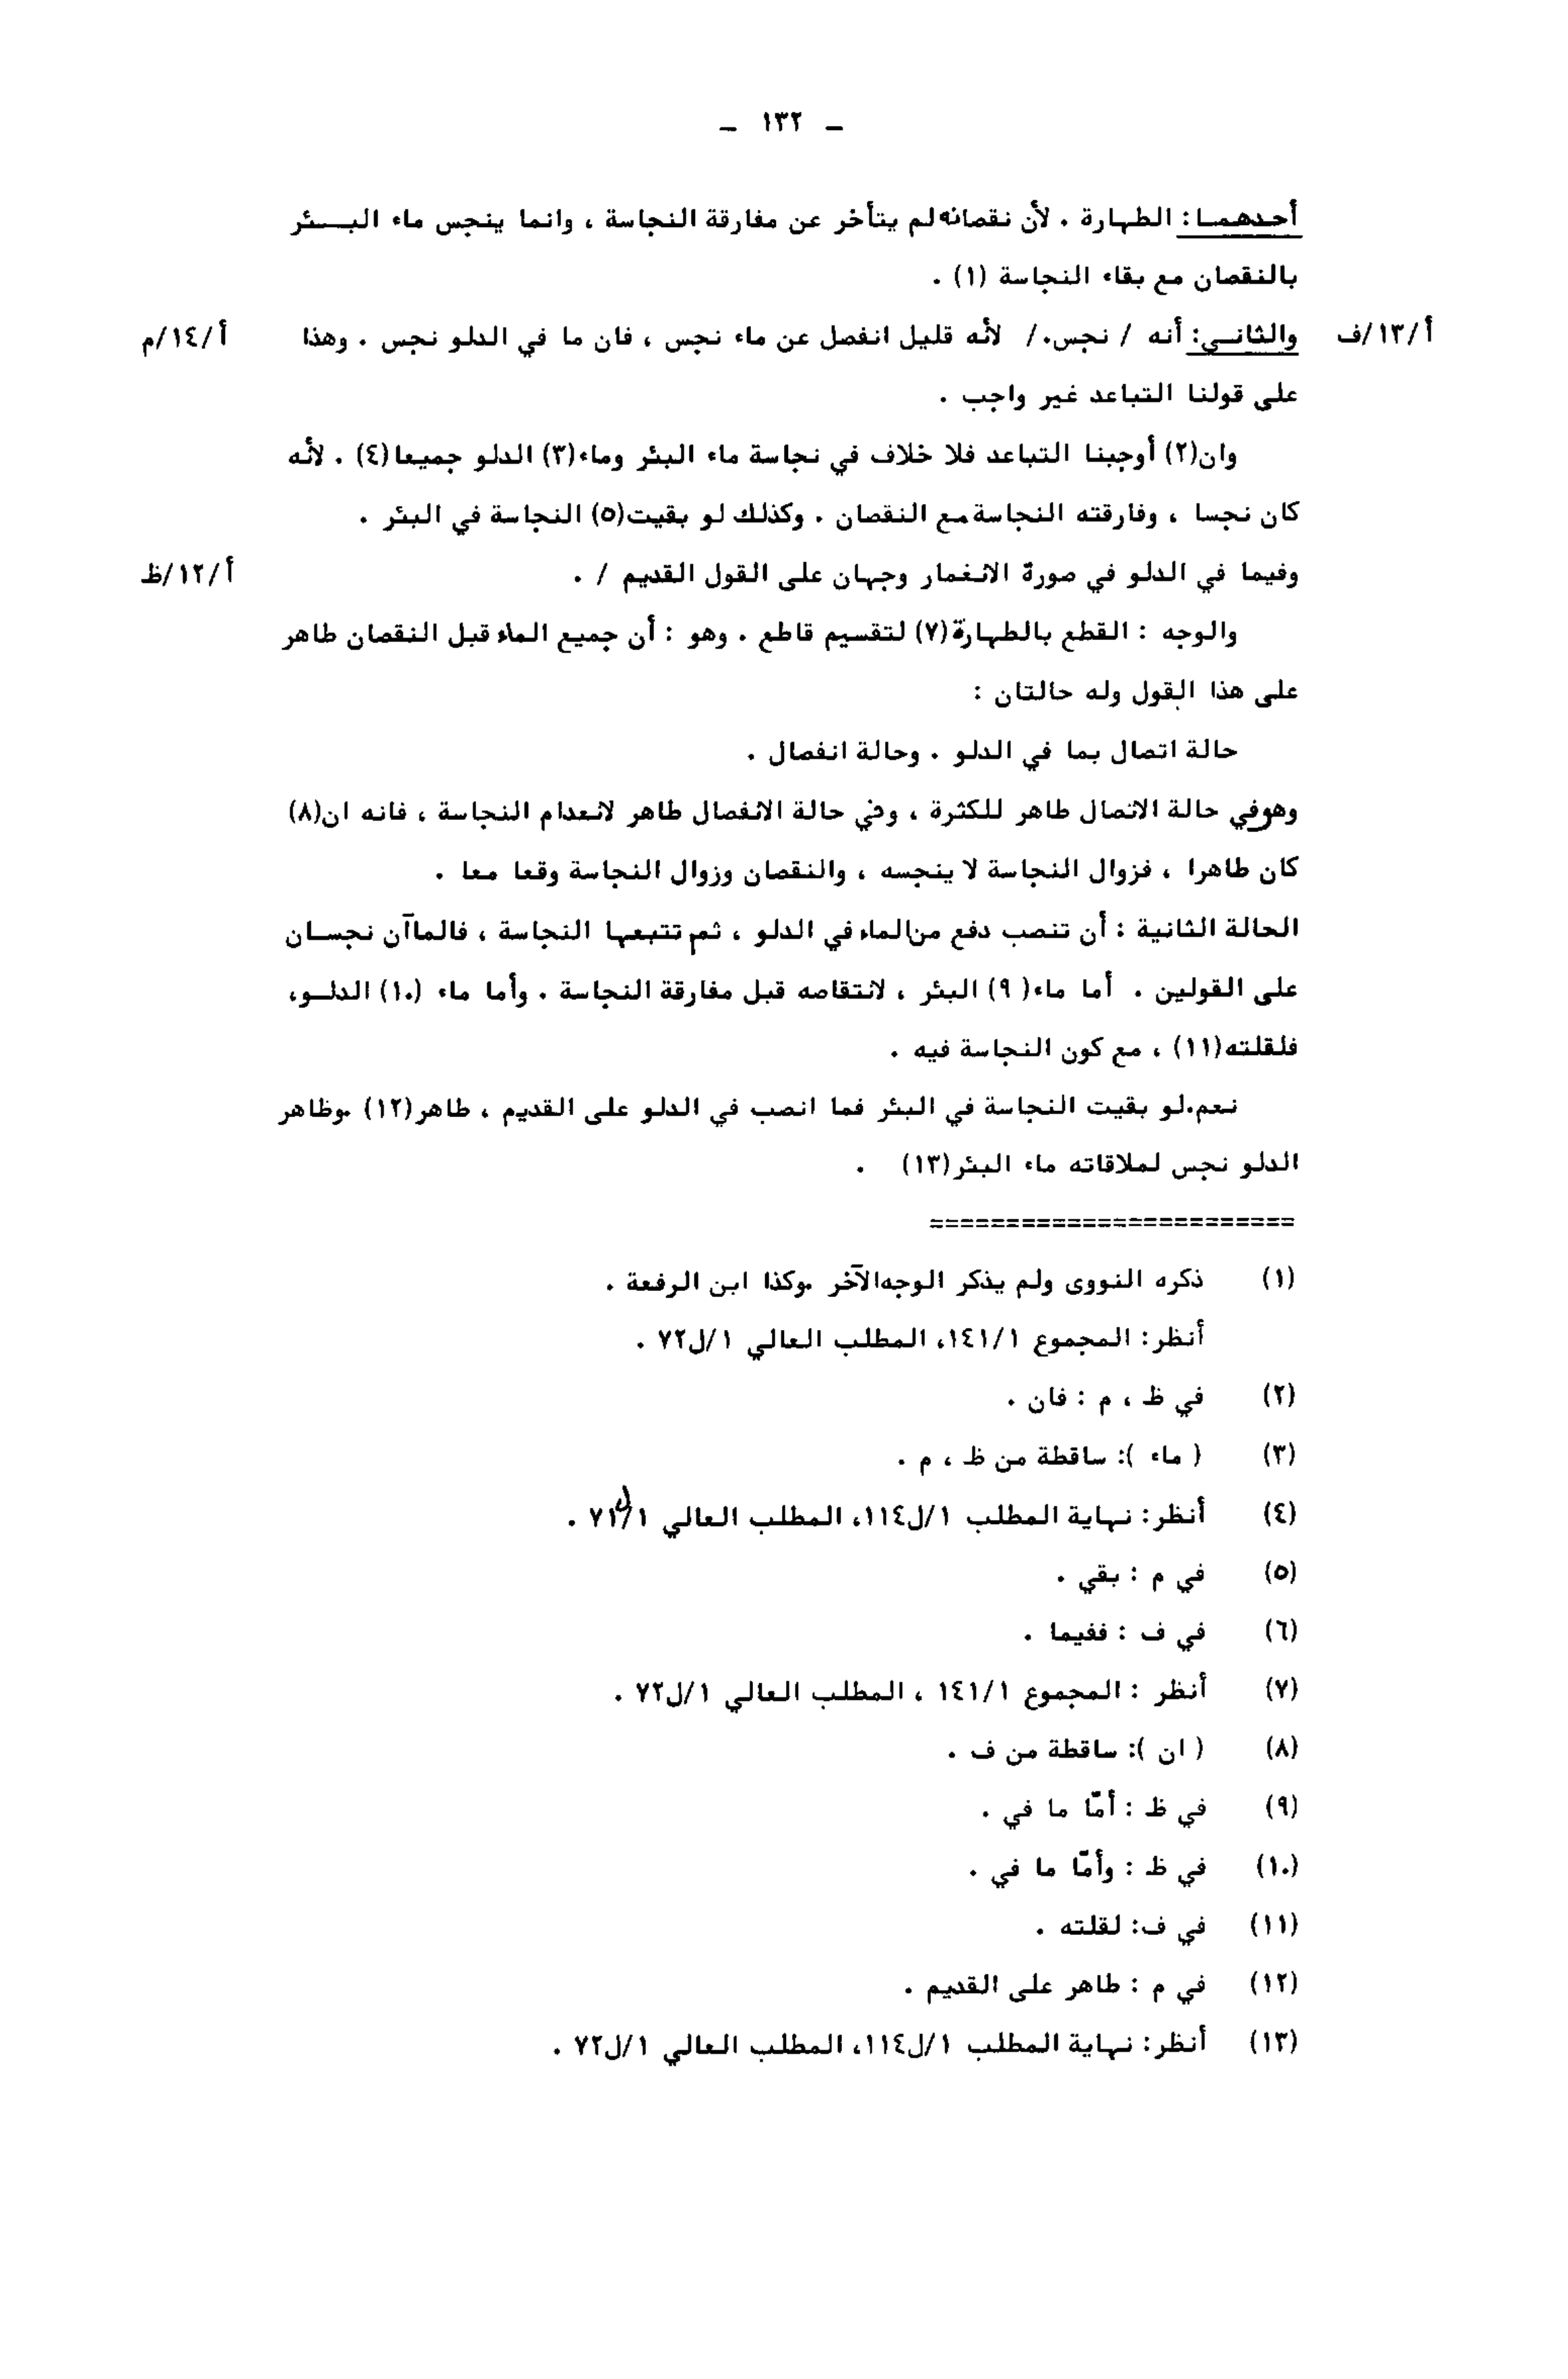 - ١٣٢ -
أحدهمـا : الطهارة . لأن نقصانه لم يتأخر عن مفارقة النجاسة ، وانما ينجس ماء البـــئر
بالنقصان مع بقاء النجاسة (١) .
أ/١٣/ف والثانـي: أنه / نجس./ لأنه قليل انفصل عن ماء نجس ، فان ما في الدلو نجس . وهذا أ/١٤/م
على قولنا التباعد غير واجب .
وان(٢) أوجبنا التباعد فلا خلاف في نجاسة ماء البئر وماء(٣) الدلو جميعا(٤) . لأنه
كان نجسا ، وفارقته النجاسة مع النقصان . وكذلك لو بقيت(٥) النجاسة في البئر .
وفيما في الدلو في صورة الانغمار وجهان على القول القديم / . أ/١٢/ظ
والوجه : القطع بالطهارة(٧) لتقسيم قاطع . وهو : أن جميع الماء قبل النقصان طاهر
على هذا القول وله حالتان :
حالة اتصال بما في الدلو . وحالة انفصال .
وهو في حالة الاتصال طاهر للكثرة ، وفي حالة الانفصال طاهر لانعدام النجاسة ، فانه ان(٨)
كان طاهرا ، فزوال النجاسة لا ينجسه ، والنقصان وزوال النجاسة وقعا معا .
الحالة الثانية : أن تنصب دفع من الماء في الدلو ، ثم تتبعها النجاسة ، فالماآن نجسـان
على القولين . أما ماء( ٩) البئر ، لانتقاصه قبل مفارقة النجاسة . وأما ماء (١٠) الدلـو،
فلقلته(١١) ، مع كون النجاسة فيه .
نعم.لو بقيت النجاسة في البئر فما انصب في الدلو على القديم ، طاهر(١٢) .وظاهر
الدلو نجس لملاقاته ماء البئر(١٣) .
========================
(١) ذكره النووى ولم يذكر الوجه الآخر .وكذا ابن الرفعة .
أنظر: المجموع ١٤١/١، المطلب العالي ١/ل٧٢ .
(٢) في ظ ، م : فان .
(٣) ( ماء ): ساقطة من ظ ، م .
(٤) أنظر: نهاية المطلب ١/ل١١٤، المطلب العالي ١/ل٧١ .
(٥) في م : بقي .
(٦) في ف : ففيما .
(٧) أنظر : المجموع ١٤١/١ ، المطلب العالي ١/ل٧٢ .
(٨) ( ان ): ساقطة من ف .
(٩) في ظ : أمّا ما في .
(١٠) في ظ : وأمّا ما في .
(١١) في ف: لقلته .
(١٢) في م : طاهر على القديم .
(١٣) أنظر: نهاية المطلب ١/ل١١٤، المطلب العالي ١/ل٧٢ .